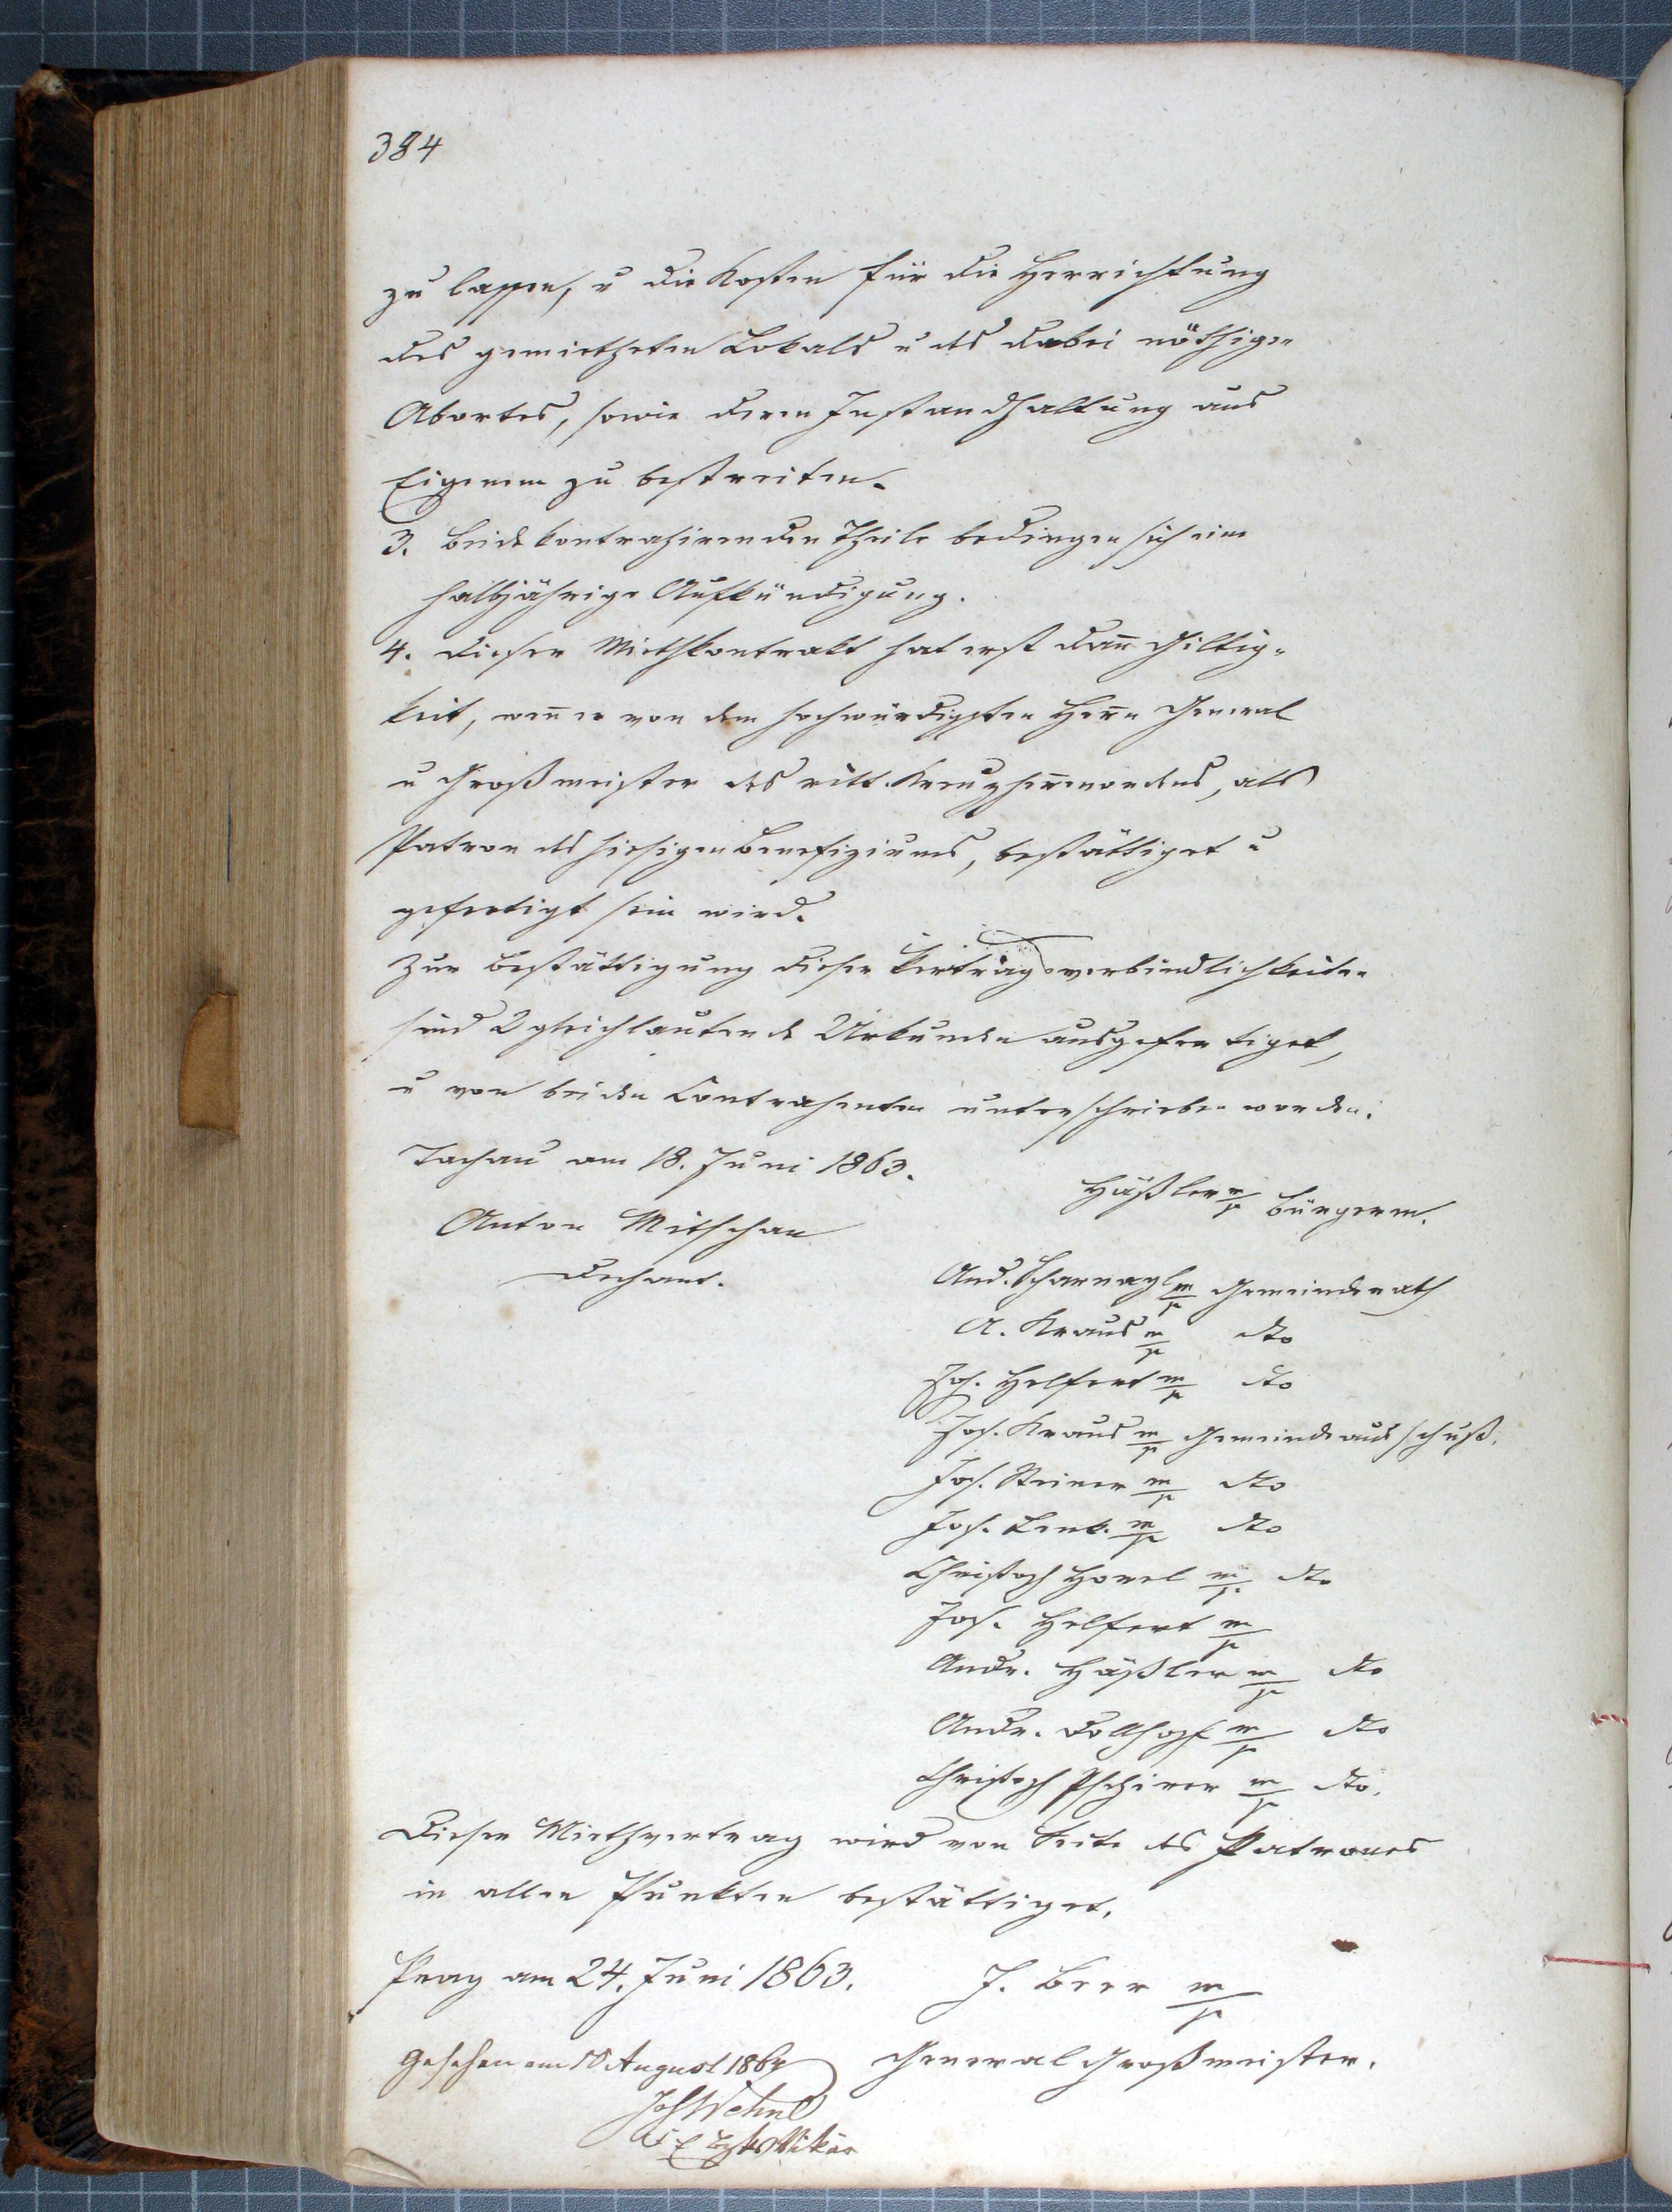 384
zu lassen, u die Kosten für die Herrichtung
des gemietheten Lokals u des dabei nöthigen
Abortes, sowie deren Instandhaltung aus
Eigenem zu bestreiten.
3. Beide kontrahirenden Theile bedingen sich eine
halbjährige Aufkündigung.
4. Dieser Miethkontrakt hat erst dan̄ Giltig-
keit, wen̄ er von dem hochwürdigsten Herrn General
u Großmeister des ritt. Kreuzherrnordens, als
Patron des hiesigen Benefiziums, bestättiget u
gefertigt sein wird.
Zur Bestättigung dieser Vertragsverbindlichkeiten
sind 2 gleichlautende Urkunden ausgefertiget,
u von beiden Contrahenten unterschrieben worden.
Tachau am 18. Juni 1863.
Häßler m/p Bürgerm.
Anton Mitschan
Dechant.
And. Scharnagl m/p Gemeinderath
A. Kraus m/p dto
Jos. Helfert m/p dto
Jos. Kraus m/p Gemeindeausschuß.
Jos. Steiner m/p dto
Jos. Lenk. m/p dto
Christoph Howel m/p dto
Jos. Helfert m/p
Andr. Häßler m/p dto
Andr. Dollhopf m/p dto
Christoph Pschirer m/p dto.
Dieser Miethvertrag wird von Seite des Patrones
in allen Punkten bestättiget.
Prag am 24. Juni 1863.
J. Beer m/p
General Großmeister.
Gesehen am 10 August 1864
Vikär